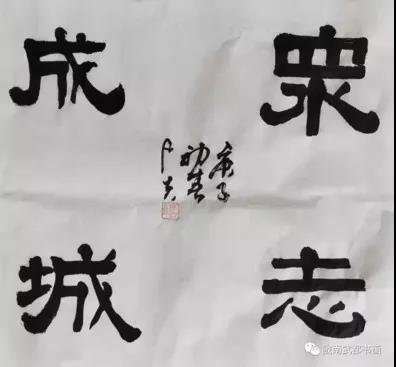 眾志
庚子
初春
成城
陇南武都书画